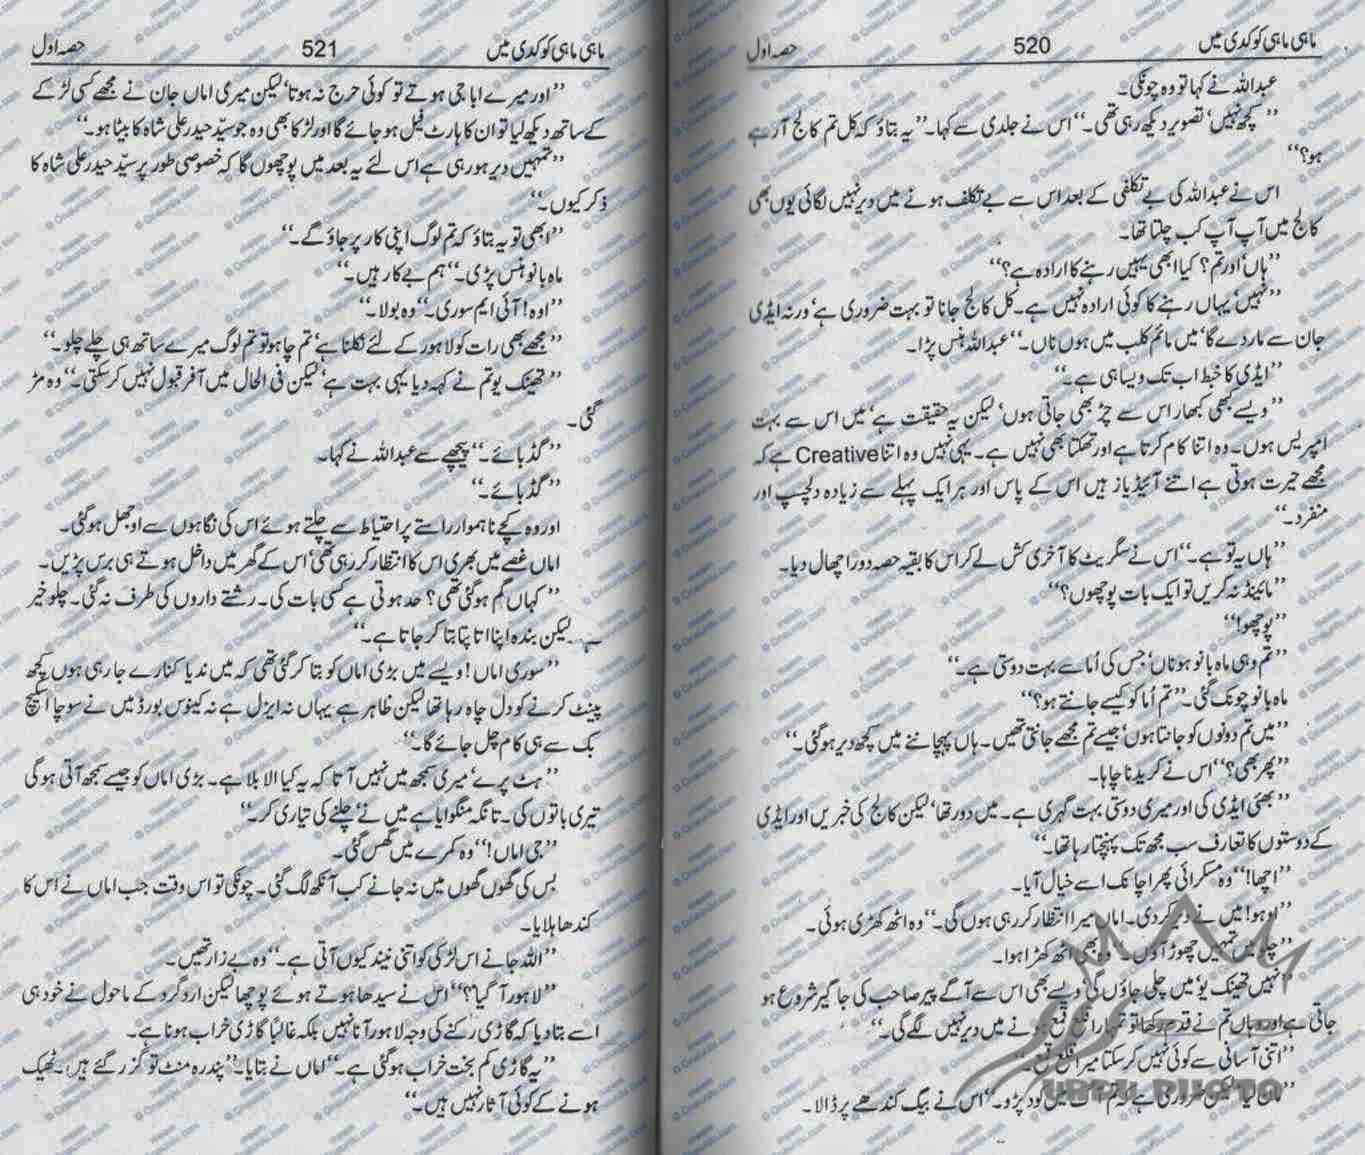 ماہی ماہی کوکدی میں 520 حصہ اول
عبداللہ نے کہا تو وہ چونکی۔
’’کچھ نہیں‘ تصویر دیکھ رہی تھی۔‘‘ اس نے جلدی سے کہا۔ ’’یہ بتاؤ کہ کل تم کالج آ رہے
ہو؟‘‘
اس نے عبداللہ کی بے تکلفی کے بعد اس سے بے تکلف ہونے میں دیر نہیں لگائی یوں بھی
کالج میں آپ آپ کب چلتا تھا۔
’’ہاں‘ اور تم؟ کیا ابھی یہیں رہنے کا ارادہ ہے؟‘‘
’’نہیں‘ یہاں رہنے کا کوئی ارادہ نہیں ہے۔ کل کالج جانا تو بہت ضروری ہے‘ ورنہ ایڈی
جان سے مار دے گا‘ میں مائم کلب میں ہوں ناں۔‘‘ عبداللہ ہنس پڑا۔
’’ایڈی کا خبط اب تک ویسا ہی ہے۔‘‘
’’ویسے کبھی کبھار اس سے چڑ بھی جاتی ہوں‘ لیکن یہ حقیقت ہے‘ میں اس سے بہت
امپریس ہوں۔ وہ اتنا کام کرتا ہے اور تھکتا بھی نہیں ہے۔ یہی نہیں وہ اتنا Creative ہے کہ
مجھے حیرت ہوتی ہے اتنے آئیڈیاز ہیں اس کے پاس اور ہر ایک پہلے سے زیادہ دلچسپ اور
منفرد۔‘‘
’’ہاں یہ تو ہے۔‘‘ اس نے سگریٹ کا آخری کش لے کر اس کا بقیہ حصہ دور اچھال دیا۔
’’مائینڈ نہ کریں تو ایک بات پوچھوں؟‘‘
’’پوچھو!‘‘
’’تم وہی ماہ بانو ہو ناں‘ جس کی اُما سے بہت دوستی ہے۔‘‘
ماہ بانو چونک گئی۔ ’’تم اُما کو کیسے جانتے ہو؟‘‘
’’میں تم دونوں کو جانتا ہوں‘ جیسے تم مجھے جانتی تھیں۔ ہاں پہچاننے میں کچھ دیر ہو گئی۔‘‘
’’پھر بھی؟‘‘ اس نے کریدنا چاہا۔
’’بھئی ایڈی کی اور میری دوستی بہت گہری ہے۔ میں دور تھا‘ لیکن کالج کی خبریں اور ایڈی
کے دوستوں کا تعارف سب مجھ تک پہنچتا رہا تھا۔‘‘
’’اچھا!‘‘ وہ مسکرائی پھر اچانک اسے خیال آیا۔
’’اوہو! میں نے دیر کر دی۔ اماں میرا انتظار کر رہی ہوں گی۔‘‘ وہ اٹھ کھڑی ہوئی۔
’’چلو میں تمہیں چھوڑ آؤں۔‘‘ وہ بھی اٹھ کھڑا ہوا۔
’’نہیں تھینک یو‘ میں چلی جاؤں گی‘ ویسے بھی اس سے آگے پیر صاحب کی جاگیر شروع ہو
جاتی ہے اور وہاں تم نے قدم رکھا تو تمہارا قلع قمع ہونے میں دیر نہیں لگے گی۔‘‘
’’اتنی آسانی سے کوئی نہیں کر سکتا میرا قلع قمع۔‘‘
’’مان لیا‘ لیکن ضروری ہے کہ تم میں کود پڑو۔‘‘ اس نے بیگ کندھے پر ڈالا۔
URDU PHOTO
ماہی ماہی کوکدی میں 521 حصہ اول
’’اور میرے ابا جی ہوتے تو کوئی حرج نہ ہوتا‘ لیکن میری اماں جان نے مجھے کسی لڑکے
کے ساتھ دیکھ لیا تو ان کا ہارٹ فیل ہو جائے گا اور لڑکا بھی وہ جو سیّد حیدر علی شاہ کا بیٹا ہو۔‘‘
’’تمہیں دیر ہو رہی ہے اس لئے یہ بعد میں پوچھوں گا کہ خصوصی طور پر سیّد حیدر علی شاہ کا
ذکر کیوں۔‘‘
’’ابھی تو یہ بتاؤ کہ تم لوگ اپنی کار پر جاؤ گے۔‘‘
ماہ بانو ہنس پڑی۔ ’’ہم بے کار ہیں۔‘‘
’’اوہ! آئی ایم سوری۔‘‘ وہ بولا۔
’’مجھے بھی رات کو لاہور کے لئے نکلنا ہے‘ تم چاہو تو تم لوگ میرے ساتھ ہی چلے چلو۔‘‘
’’تھینک یو تم نے کہہ دیا یہی بہت ہے‘ لیکن فی الحال میں آفر قبول نہیں کر سکتی۔‘‘ وہ مڑ
گئی۔
’’گڈ بائے۔‘‘ پیچھے سے عبداللہ نے کہا۔
’’گڈ بائے۔‘‘
اور وہ کچے ناہموار راستے پر احتیاط سے چلتے ہوئے اس کی نگاہوں سے اوجھل ہو گئی۔
اماں غصے میں بھری اس کا انتظار کر رہی تھی‘ اس کے گھر میں داخل ہوتے ہی برس پڑیں۔
’’کہاں گم ہو گئی تھی؟ حد ہوتی ہے کسی بات کی۔ رشتے داروں کی طرف نہ گئی۔ چلو خیر
ہے۔ لیکن بندہ اپنا اتا پتا بتا کر جاتا ہے۔‘‘
’’سوری اماں! ویسے میں بڑی اماں کو بتا کر گئی تھی کہ میں ندیا کنارے جا رہی ہوں کچھ
پینٹ کرنے کو دل چاہ رہا تھا لیکن ظاہر ہے یہاں نہ ایزل ہے نہ کینوس بورڈ میں نے سوچا اسکیچ
بک سے ہی کام چل جائے گا۔‘‘
’’ہٹ پرے‘ میری سمجھ میں نہیں آتا کہ یہ کیا الا بلا ہے۔ بڑی اماں کو جیسے سمجھ آتی ہو گی
تیری باتوں کی۔ تانگہ منگوایا ہے میں نے‘ چلنے کی تیاری کر۔‘‘
’’جی اماں!‘‘ وہ کمرے میں گھس گئی۔
بس کی گھوں گھوں میں نہ جانے کب آنکھ لگ گئی۔ چونکی تو اس وقت جب اماں نے اس کا
کندھا ہلایا۔
’’اللہ جانے اس لڑکی کو اتنی نیند کیوں آتی ہے۔‘‘ وہ بے زار تھیں۔
’’لاہور آ گیا؟‘‘ اس نے سیدھا ہوتے ہوئے پوچھا لیکن اردگرد کے ماحول نے خود ہی
اسے بتا دیا کہ گاڑی رکنے کی وجہ لاہور آنا نہیں بلکہ غالباً گاڑی خراب ہونا ہے۔
’’یہ گاڑی کم بخت خراب ہو گئی ہے۔‘‘ اماں نے بتایا۔ ’’پندرہ منٹ تو گزر گئے ہیں۔ ٹھیک
ہونے کے کوئی آثار نہیں ہیں۔‘‘